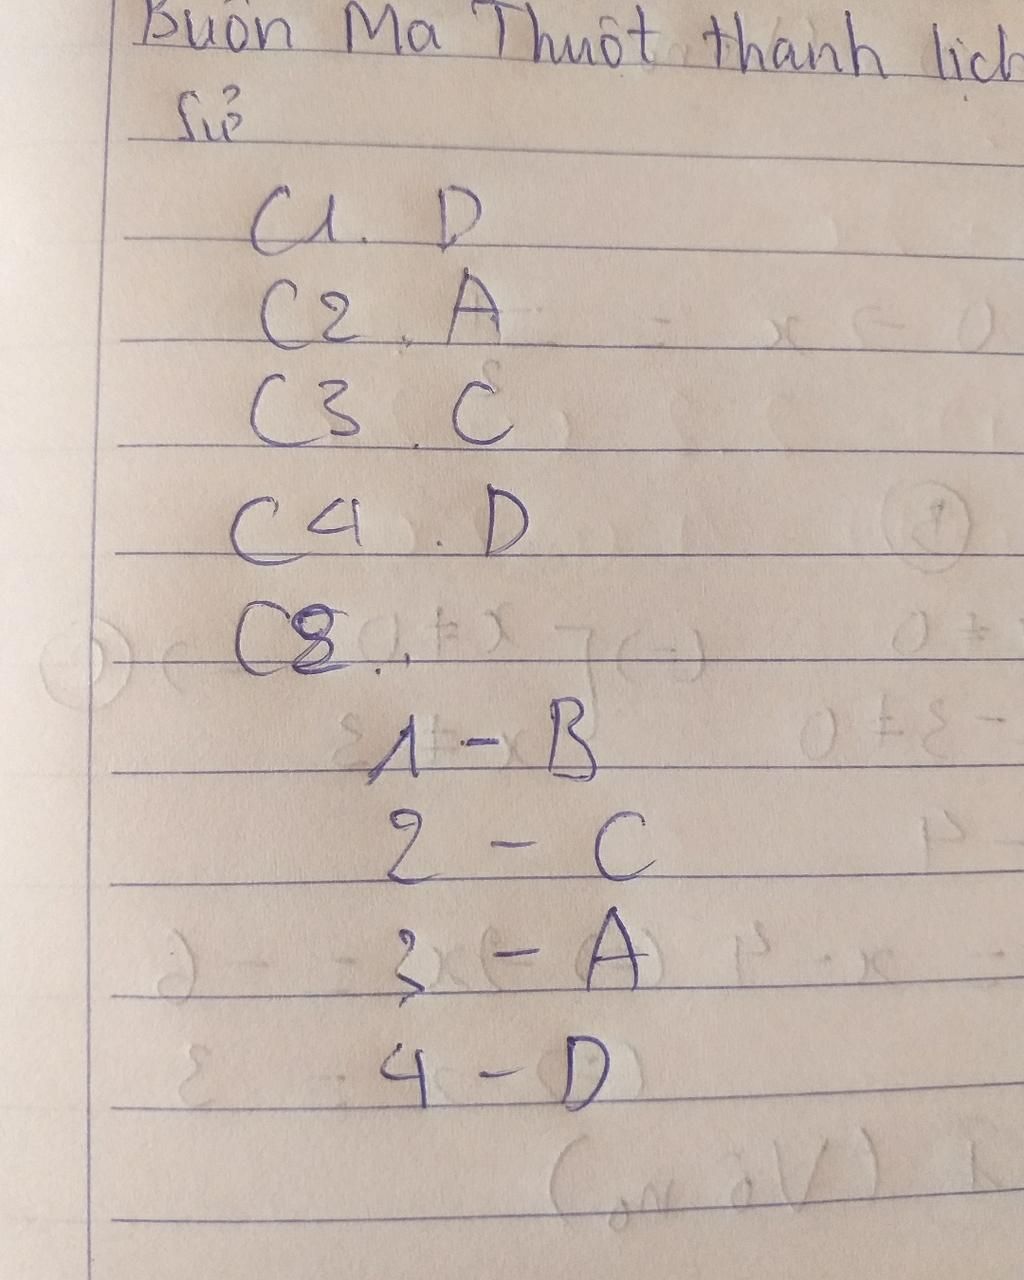 Buôn Ma Thuột thành lịch
sử
C1. D
C2. A
C3. C
C4. D
C8.
1 - B
2 - C
3 - A
4 - D